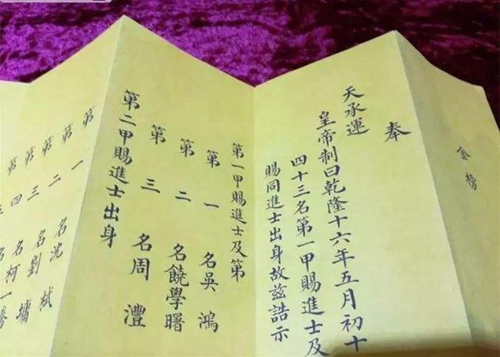 金榜
奉
天承運
皇帝制曰乾隆十六年五月初十
四十三名第一甲賜進士及
賜同進士出身故茲誥示
第一甲賜進士及第
第一名吳鴻
第二名饒學曙
第三名周灃
第二甲賜進士出身
第一名沈栻
第二名劉墉
第三名柯一
第四名
第